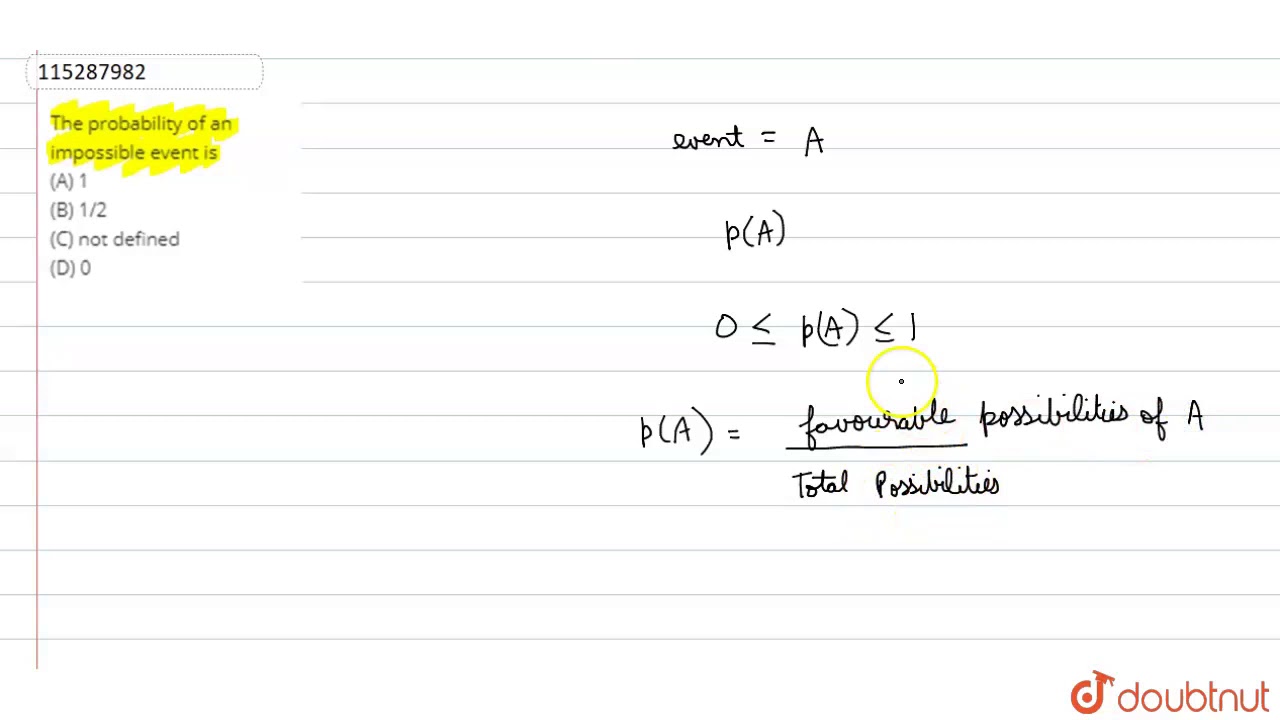 115287982
The probability of an
impossible event is
(A) 1
(B) 1/2
(C) not defined
(D) 0
event = A
p(A)
0 ≤ p(A) ≤ 1
p(A) = favourable possibilities of A
Total Possibilities
doubtnut